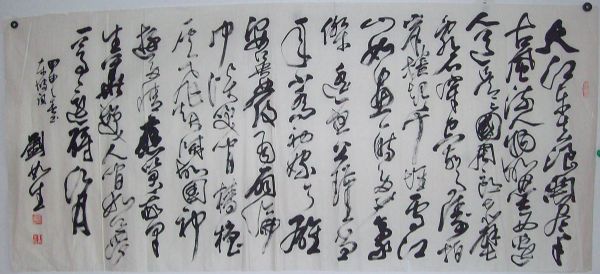 大江东去浪淘尽千
古風流人物故壘西邊
人道是三國周郎赤壁
亂石穿空驚濤拍
岸捲起千堆雪江
山如畫一時多少豪
傑遙想公瑾當
年小喬初嫁了雄
姿英發羽扇綸
巾談笑間檣櫓
灰飛煙滅故國神
遊多情應笑我早
生華髮人間如夢
一尊還酹江月
甲申
東坡詞
劉
生